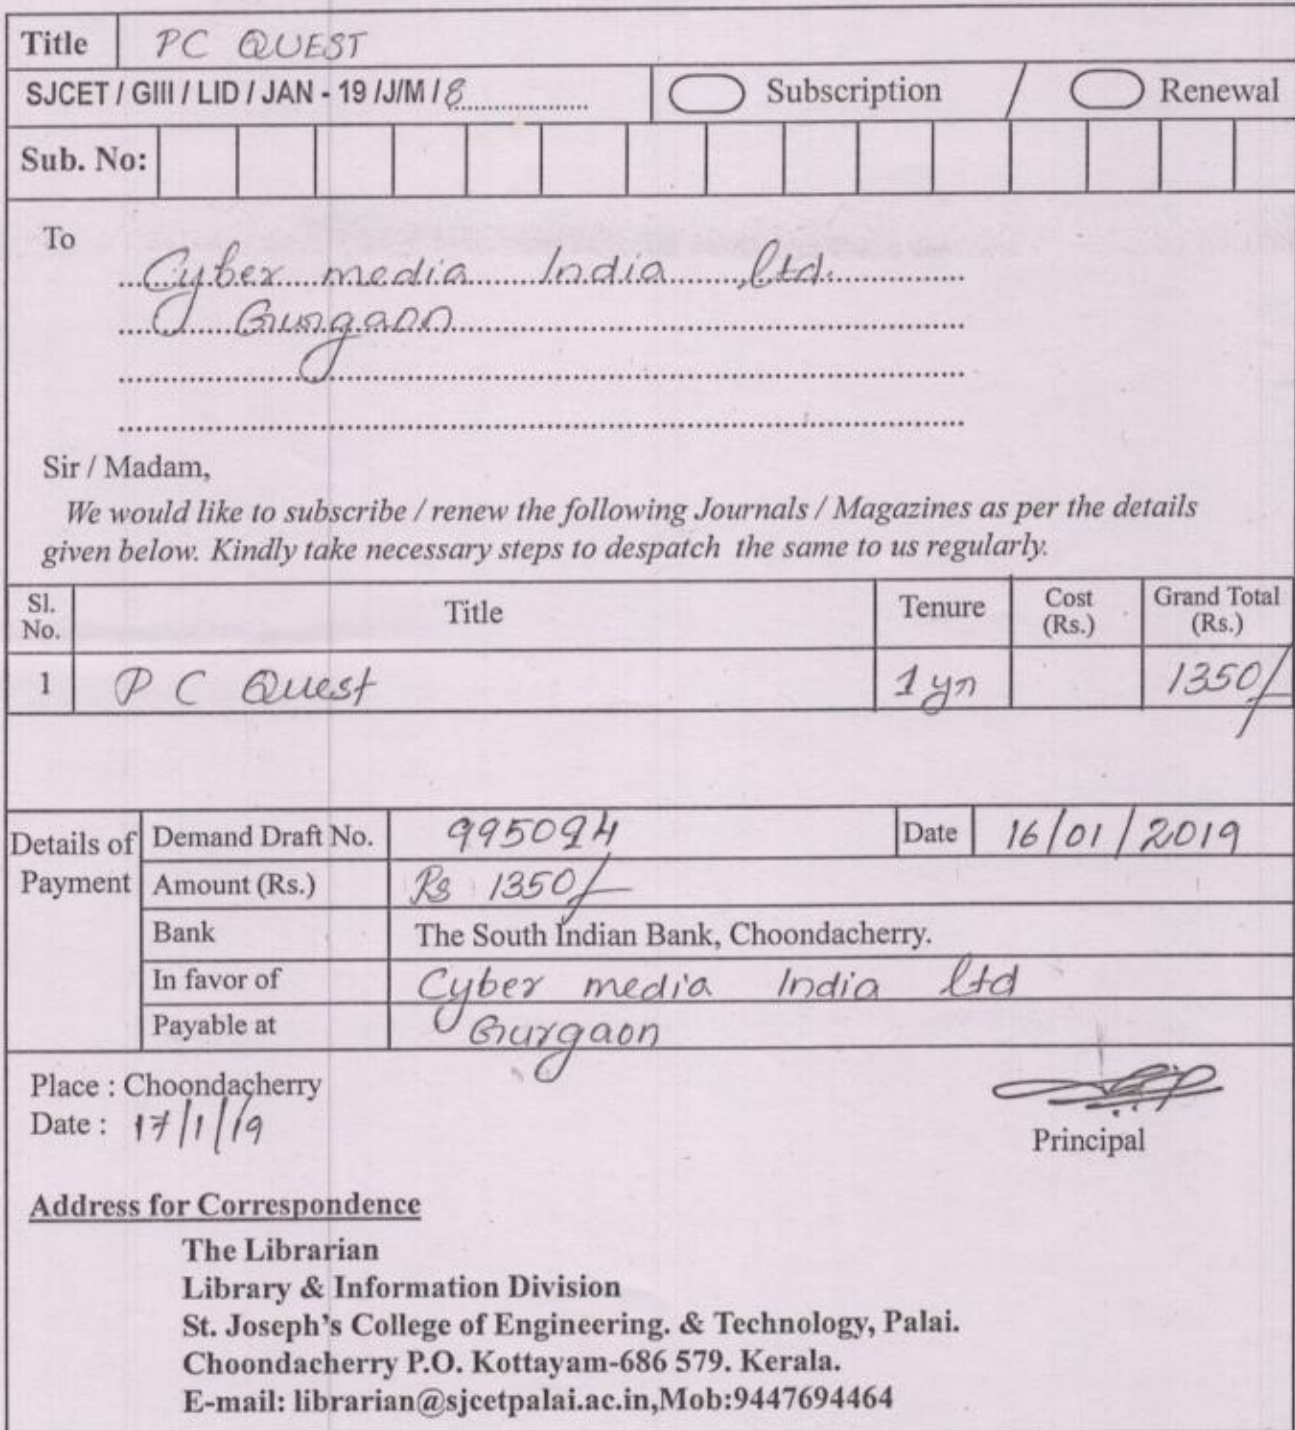 Title PC QUEST
SJCET / GIII / LID / JAN - 19 /J/M / 8 Subscription / Renewal
Sub. No:
To
Cyber media India ,ltd.
Gurgaon
Sir / Madam,
We would like to subscribe / renew the following Journals / Magazines as per the details
given below. Kindly take necessary steps to despatch the same to us regularly.
Sl. No. Title Tenure Cost (Rs.) Grand Total (Rs.)
1 P C Quest 1 yr 1350/-
Details of Payment
Demand Draft No. 995094 Date 16/01/2019
Amount (Rs.) Rs 1350/-
Bank The South Indian Bank, Choondacherry.
In favor of Cyber media India ltd
Payable at Gurgaon
Place : Choondacherry
Date : 17/1/19
Principal
Address for Correspondence
The Librarian
Library & Information Division
St. Joseph's College of Engineering. & Technology, Palai.
Choondacherry P.O. Kottayam-686 579. Kerala.
E-mail: librarian@sjcetpalai.ac.in,Mob:9447694464